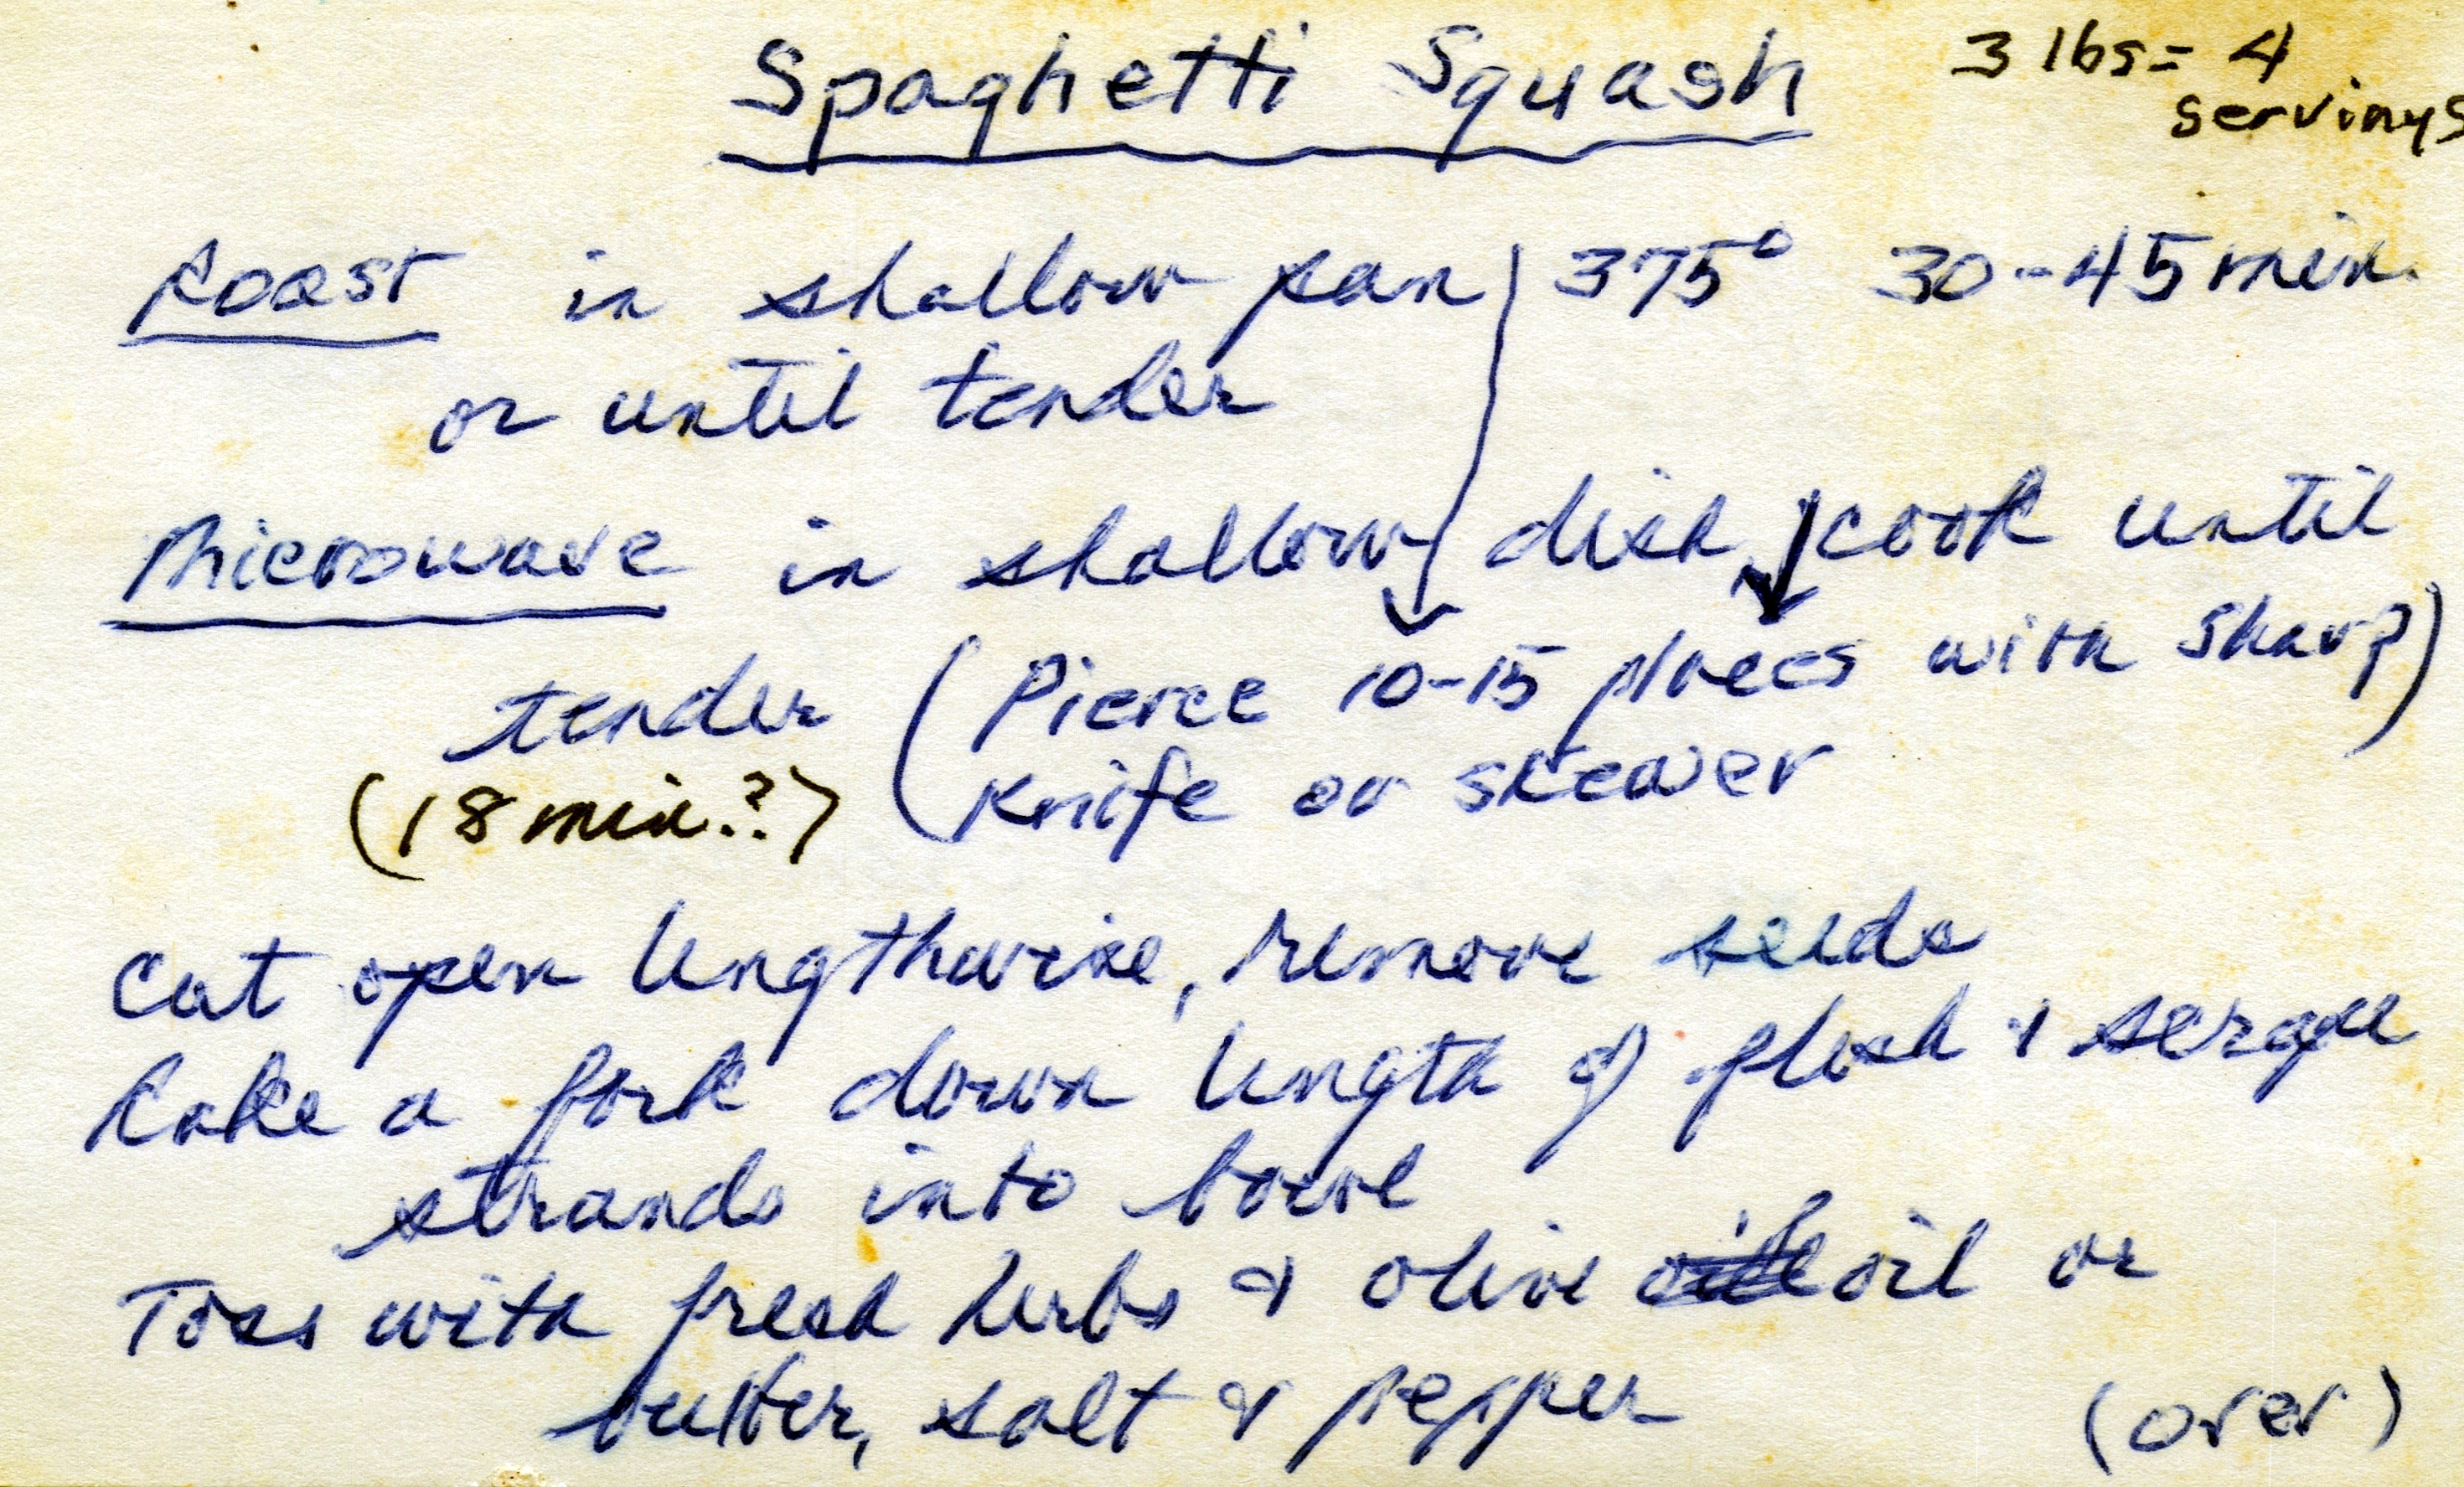 Spaghetti Squash
3 lbs = 4
servings
Roast in shallow pan 375° 30-45 min.
or until tender
Microwave in shallow dish, cook until
tender (Pierce 10-15 places with sharp)
(18 min.?) Knife or skewer
Cut open lengthwise, remove seeds
Rake a fork down length of flesh & scrape
strands into bowl
Toss with fresh herbs & olive oil or
butter, salt & pepper (over)